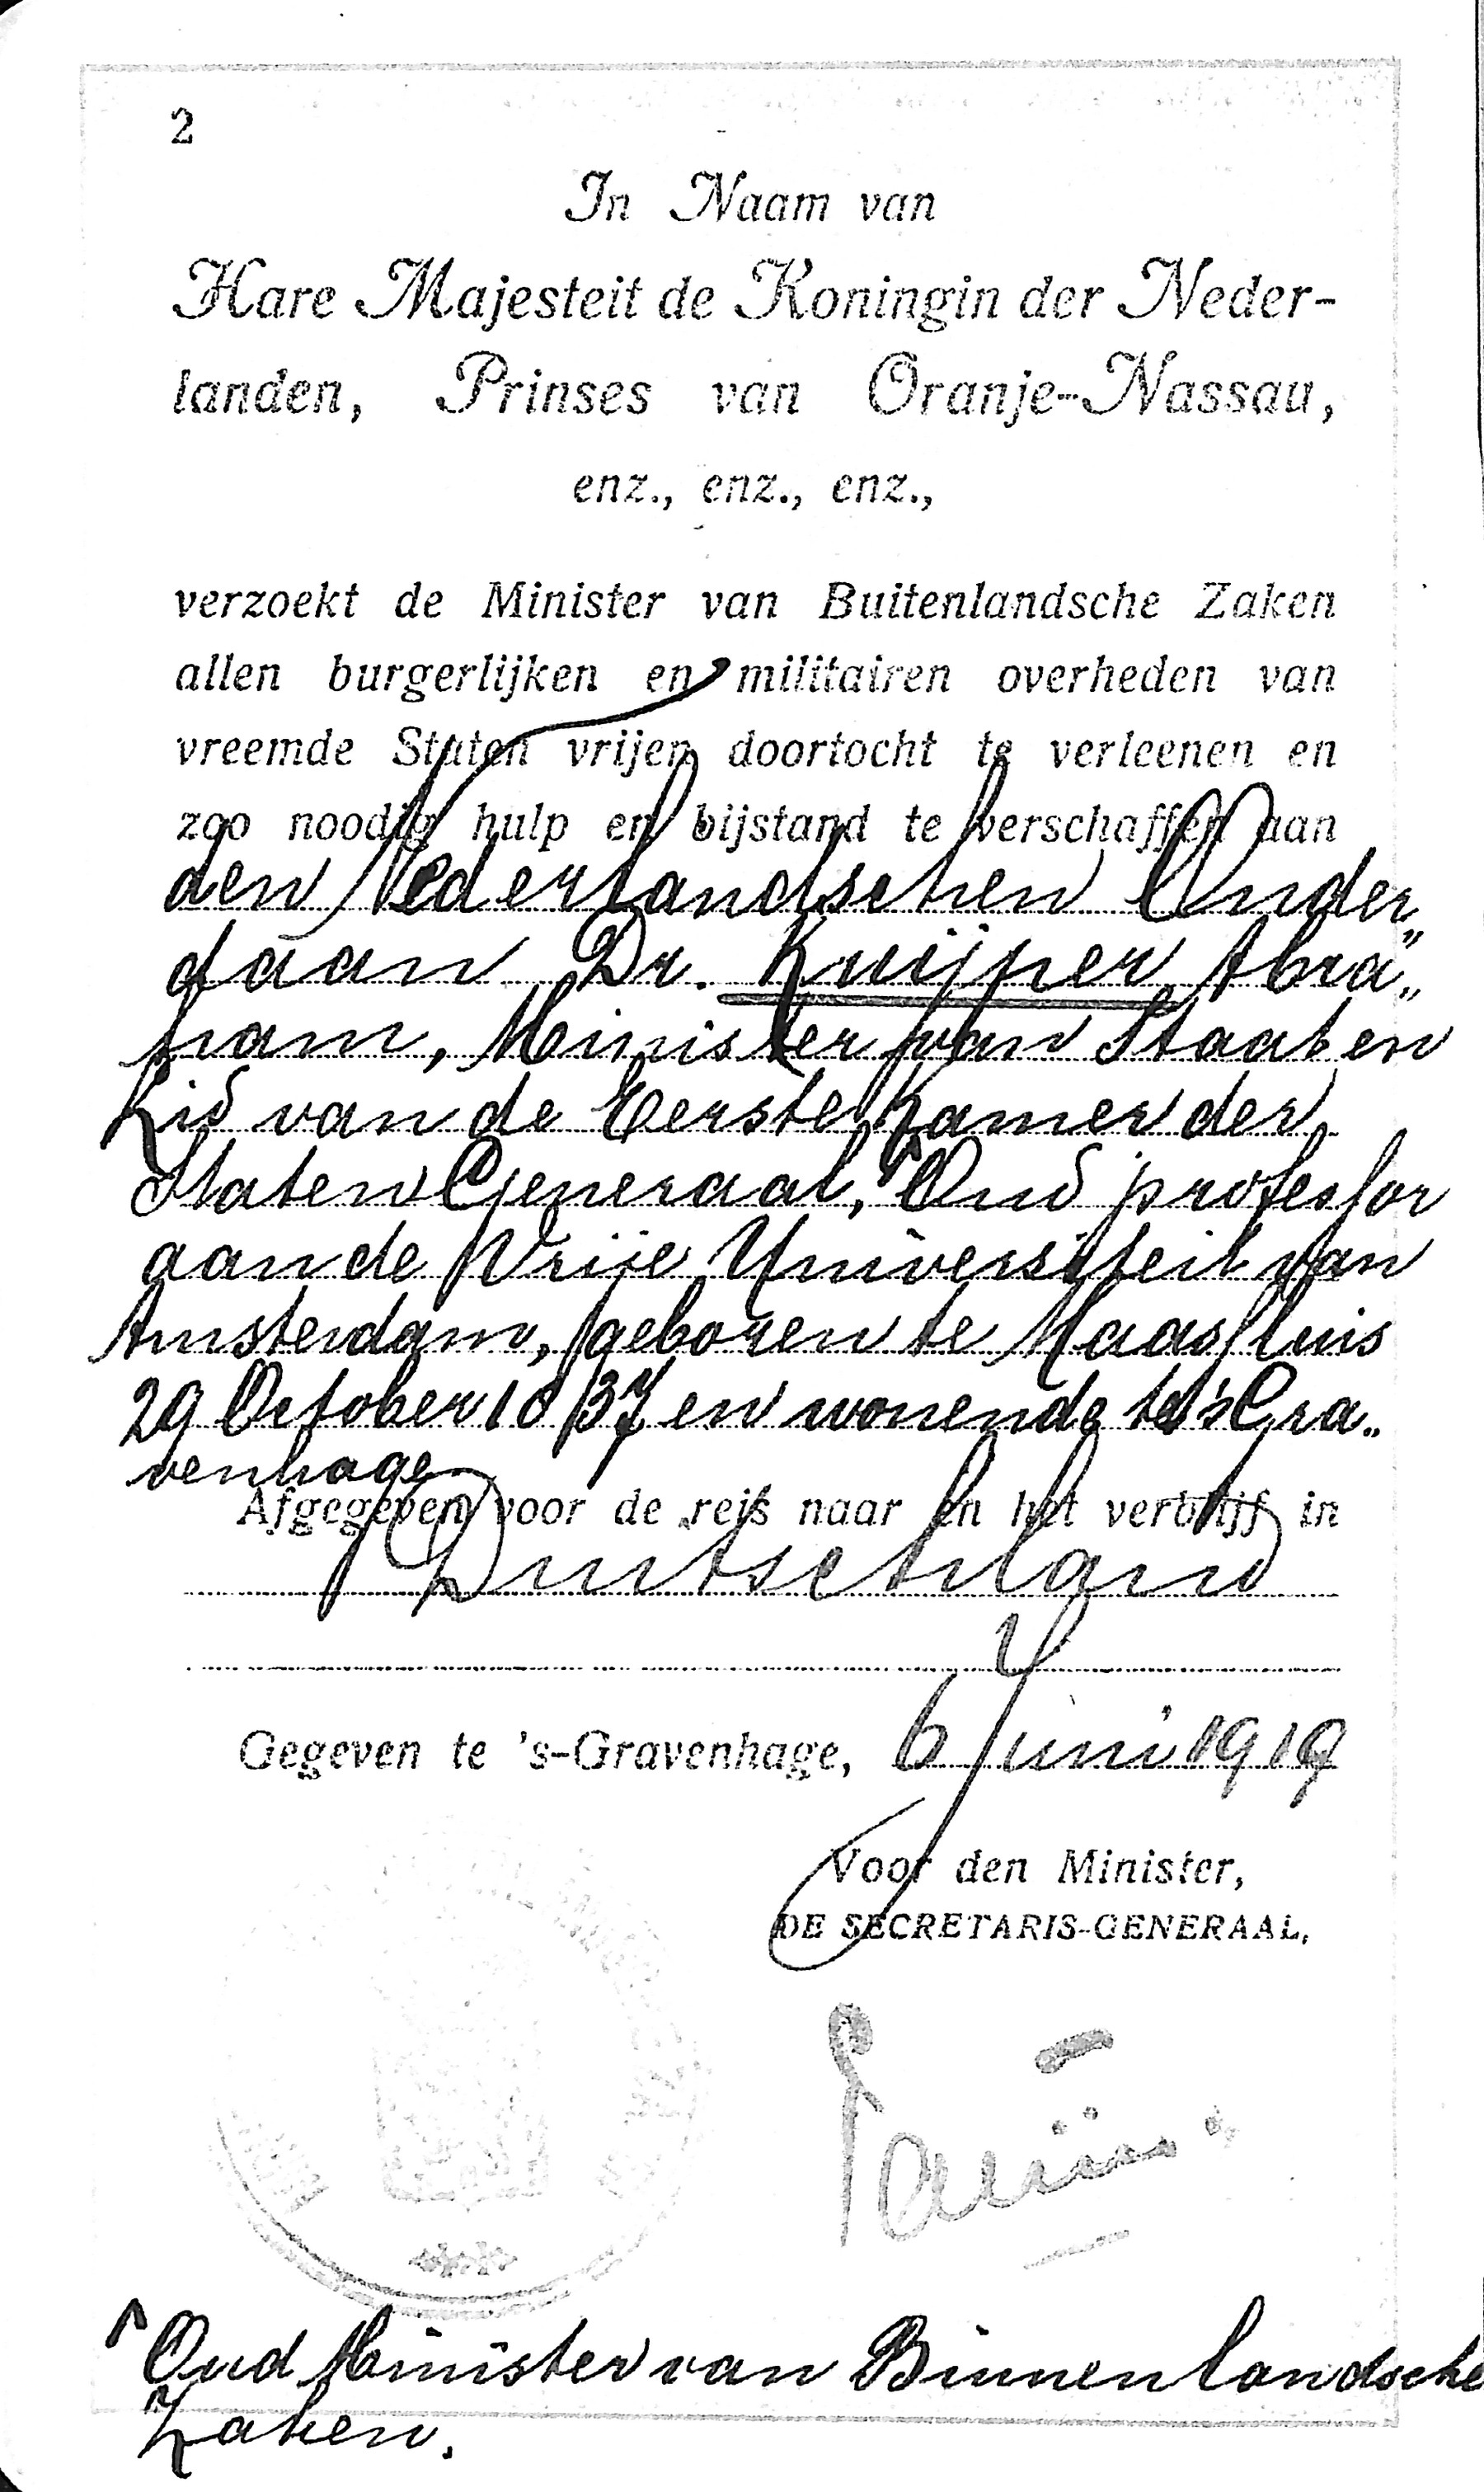 2
In Naam van
Hare Majesteit de Koningin der Neder-
landen, Prinses van Oranje-Nassau,
enz., enz., enz.,
verzoekt de Minister van Buitenlandsche Zaken
allen burgerlijken en militairen overheden van
vreemde Staten vrijen doortocht te verleenen en
zoo noodig hulp en bijstand te verschaffen aan
den Nederlandschen Onder„
daan Dr. Kuijper Abra„
ham, Minister van Staat en
Lid van de Eerste Kamer der
Staten Generaal, ⌈Oud professor
aan de Vrije Universiteit van
Amsterdam, geboren te Maassluis
29 October 1837 en wonende te 's Gra„
venhage
Afgegeven voor de reis naar en het verblijf in
Duitschland
Gegeven te 's-Gravenhage, 6 Juni 1919
Voor den Minister,
DE SECRETARIS-GENERAAL,
⌈Oud Minister van Binnenlandsche
Zaken.